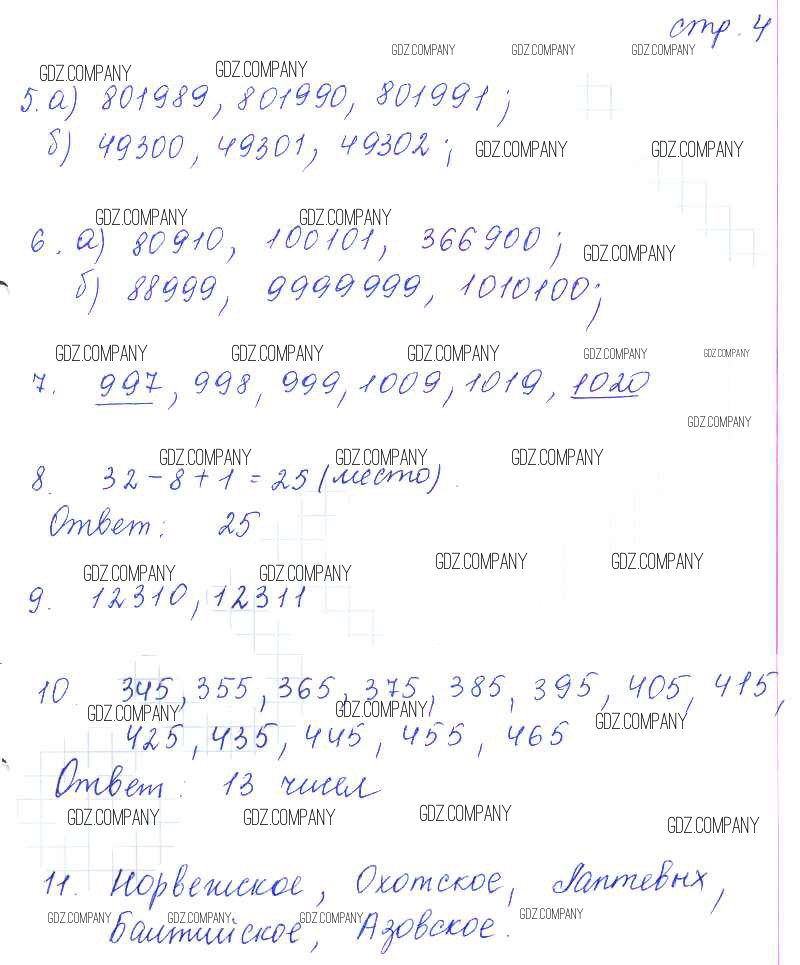 стр. 4
GDZ.COMPANY GDZ.COMPANY GDZ.COMPANY
GDZ.COMPANY GDZ.COMPANY
5. а) 801989, 801990, 801991;
б) 49300, 49301, 49302; GDZ.COMPANY GDZ.COMPANY
GDZ.COMPANY GDZ.COMPANY
6. а) 80910, 100101, 366900; GDZ.COMPANY
б) 88999, 9999999, 1010100;
GDZ.COMPANY GDZ.COMPANY GDZ.COMPANY GDZ.COMPANY GDZ.COMPANY
7. 997, 998, 999, 1009, 1019, 1020
GDZ.COMPANY
GDZ.COMPANY GDZ.COMPANY GDZ.COMPANY
8. 32 - 8 + 1 = 25 (место).
Ответ: 25
GDZ.COMPANY GDZ.COMPANY
GDZ.COMPANY GDZ.COMPANY
9. 12310, 12311
10 345, 355, 365, 375, 385, 395, 405, 415,
GDZ.COMPANY GDZ.COMPANY GDZ.COMPANY
425, 435, 445, 455, 465
Ответ: 13 чисел
GDZ.COMPANY GDZ.COMPANY GDZ.COMPANY GDZ.COMPANY
11. Норвежское, Охотское, Лаптевых,
GDZ.COMPANY GDZ.COMPANY GDZ.COMPANY GDZ.COMPANY
Балтийское, Азовское.